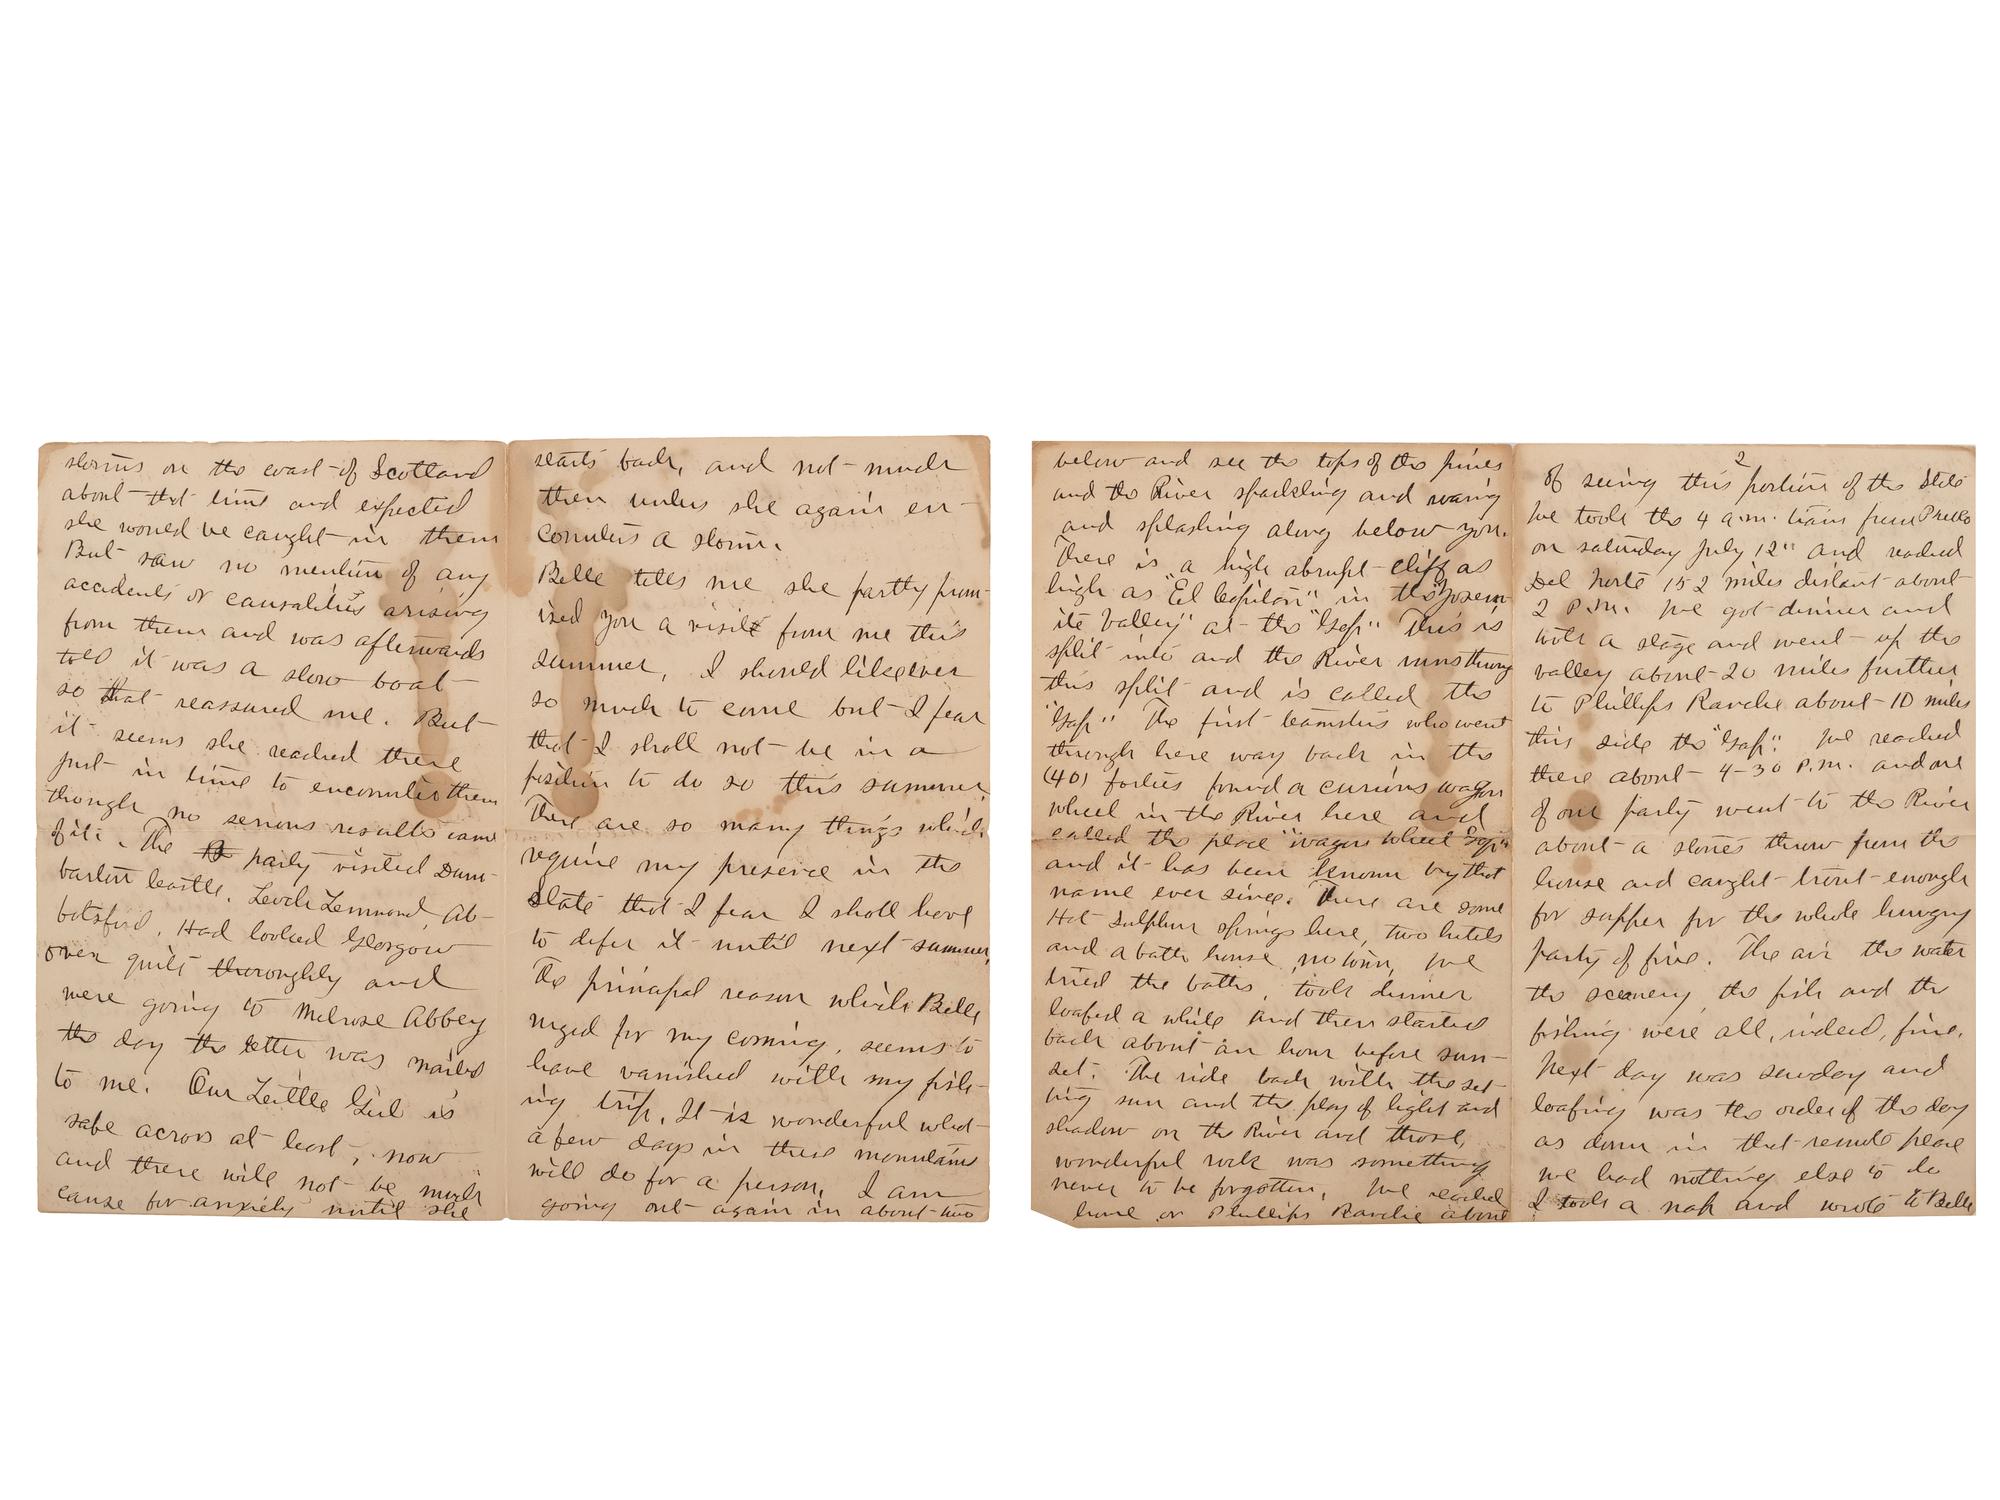 storms on the coast of Scotland
about that time and expected
she would be caught in them
But saw no mention of any
accidents or causalities arising
from them and was afterwards
told it was a slow boat
so that reassured me. But
it seems she reached there
just in time to encounter them
though no serious results came
of it. The party visited Dum-
barton Castle, Loch Lommond Ab-
botsford. Had looked Glasgow
over quite thoroughly and
were going to Melrose Abbey
the day the letter was mailed
to me. Our Little Girl is
safe across at least, now
and there will not be much
cause for anxiety until she
starts back, and not much
then unless she again en-
counters a storm.
Belle tells me she partly prom-
ised you a visit from me this
summer, I should like ever
so much to come but I fear
that I shall not be in a
position to do so this summer.
There are so many things which
require my presence in the
State that I fear I shall have
to defer it until next summer,
The principal reason which Belle
urged for my coming, seems to
have vanished with my fish-
ing trip. It is wonderful what
a few days in these mountains
will do for a person. I am
going out again in about two
below and see the tops of the pines
and the River sparkling and
and splashing along below you.
There is a high abrupt cliff as
high as "El Capitan" in the "Yosem-
ite Valley" at the "Gap" This is
split into and the River runs through
this split and is called the
"Gap" The first teamsters who went
through here way back in the
(40) forties found a curious wagon
wheel in the River here and
called the place "wagon wheel Gap"
and it has been known by that
name ever since. There are some
Hot Sulphur springs here, two hotels
and a bath house, no town, We
tried the baths, took dinner
loafed a while and then started
back about an hour before sun-
set. The ride back with the set-
ting sun and the play of light and
shadow on the River and those
wonderful rock was something
never to be forgotten. We reached
home or Phillips Ranche about
2
of seeing this portion of the State
We took the 4 a.m. train from Pueblo
on saturday July 12" and reached
Del Norte 152 miles distant about
2 P.M. We got dinner and
took a stage and went up the
valley about 20 miles further
to Phillips Ranche about 10 miles
this side the "Gap". We reached
there about 4-30 P.M. and one
of our party went to the River
about a stones throw from the
house and caught trout enough
for supper for the whole hungry
party of five. The air the water
the scenery the fish and the
fishing were all, indeed, fine.
Next day was sunday and
loafing was the order of the day
as down in that remote place
we had nothing else to do
I took a nap and wrote to Belle